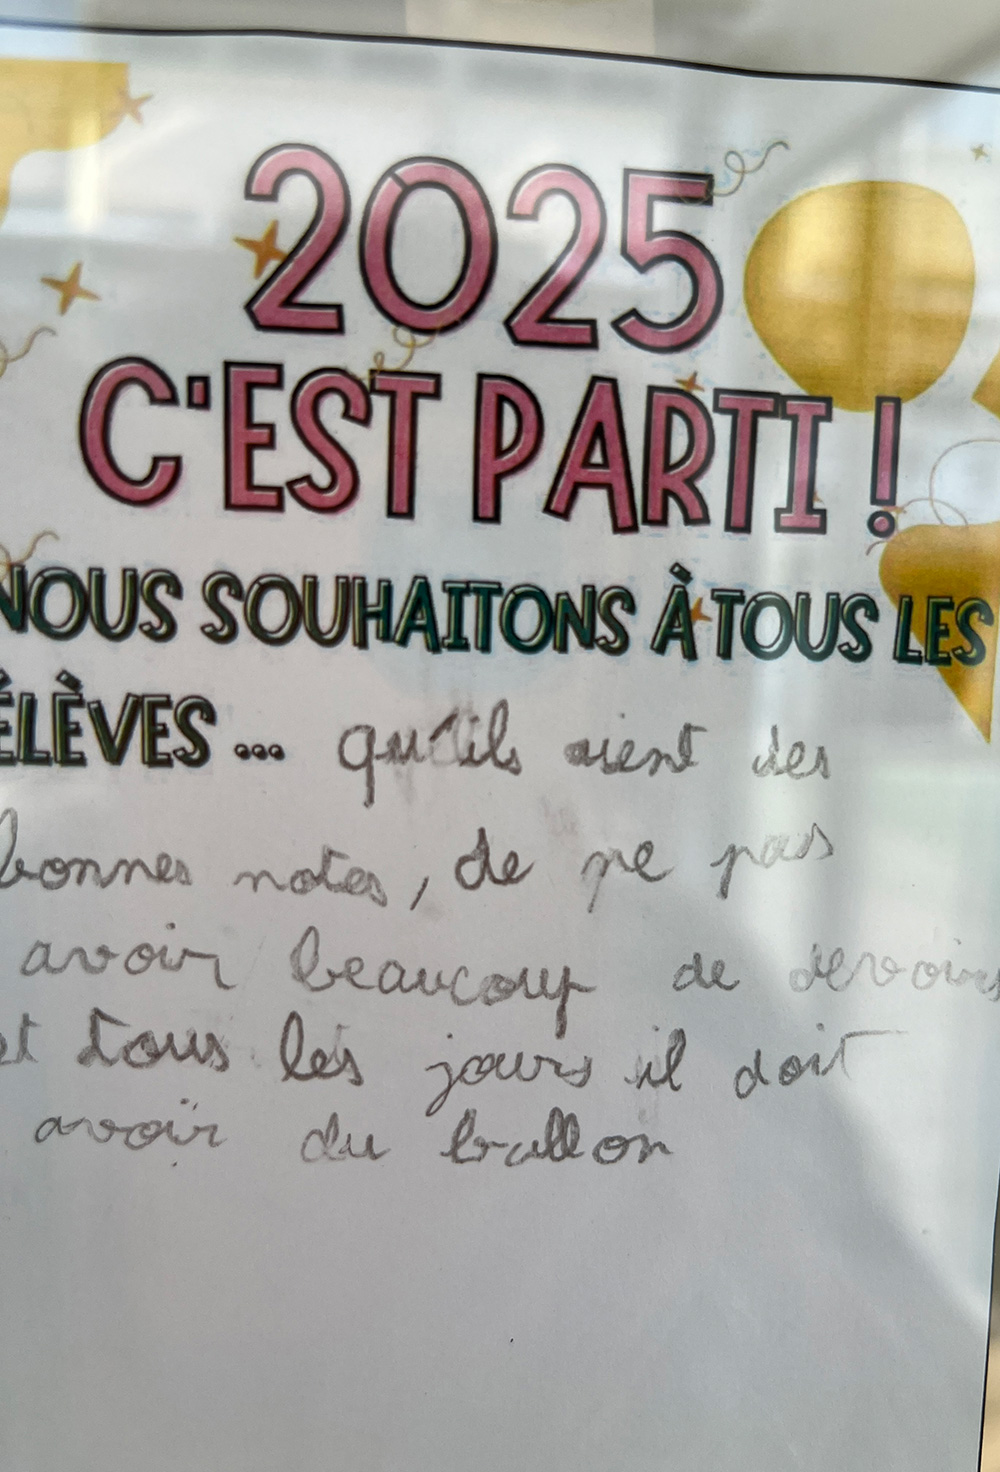 2025
C'EST PARTI !
NOUS SOUHAITONS À TOUS LES
ÉLÈVES ... qu'ils aient des
bonnes notes, de ne pas
avoir beaucoup de devoirs
et tous les jours il doit
avoir du ballon